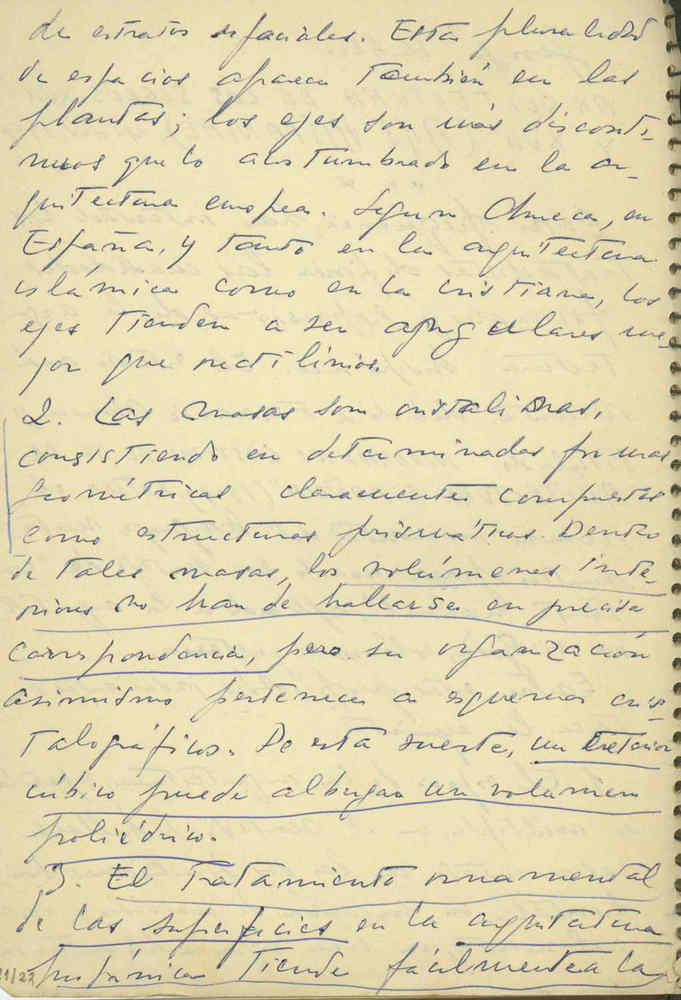 de estratos espaciales. Esta pluralidad
de espacios aparece también en las
plantas; los ejes son más disconti-
nuos que lo acostumbrado en la ar-
quitectura europea. Según Chueca, en
España, y tanto en la arquitectura
islámica como en la cristiana, los
ejes tienden a ser angulares me-
jor que rectilíneos.
2. Las masas son cristalinas,
consistiendo en determinadas formas
geométricas claramente compuestas
como estructuras prismáticas. Dentro
de tales masas, los volúmenes inte-
riores no han de hallarse en precisa
correspondencia, pero su organización
asimismo pertenece a esquemas cris-
talográficos. De esta suerte, un exterior
cúbico puede albergar un volumen
poliédrico.
3. El tratamiento ornamental
de las superficies en la arquitectura
hispánica tiende fácilmente a la